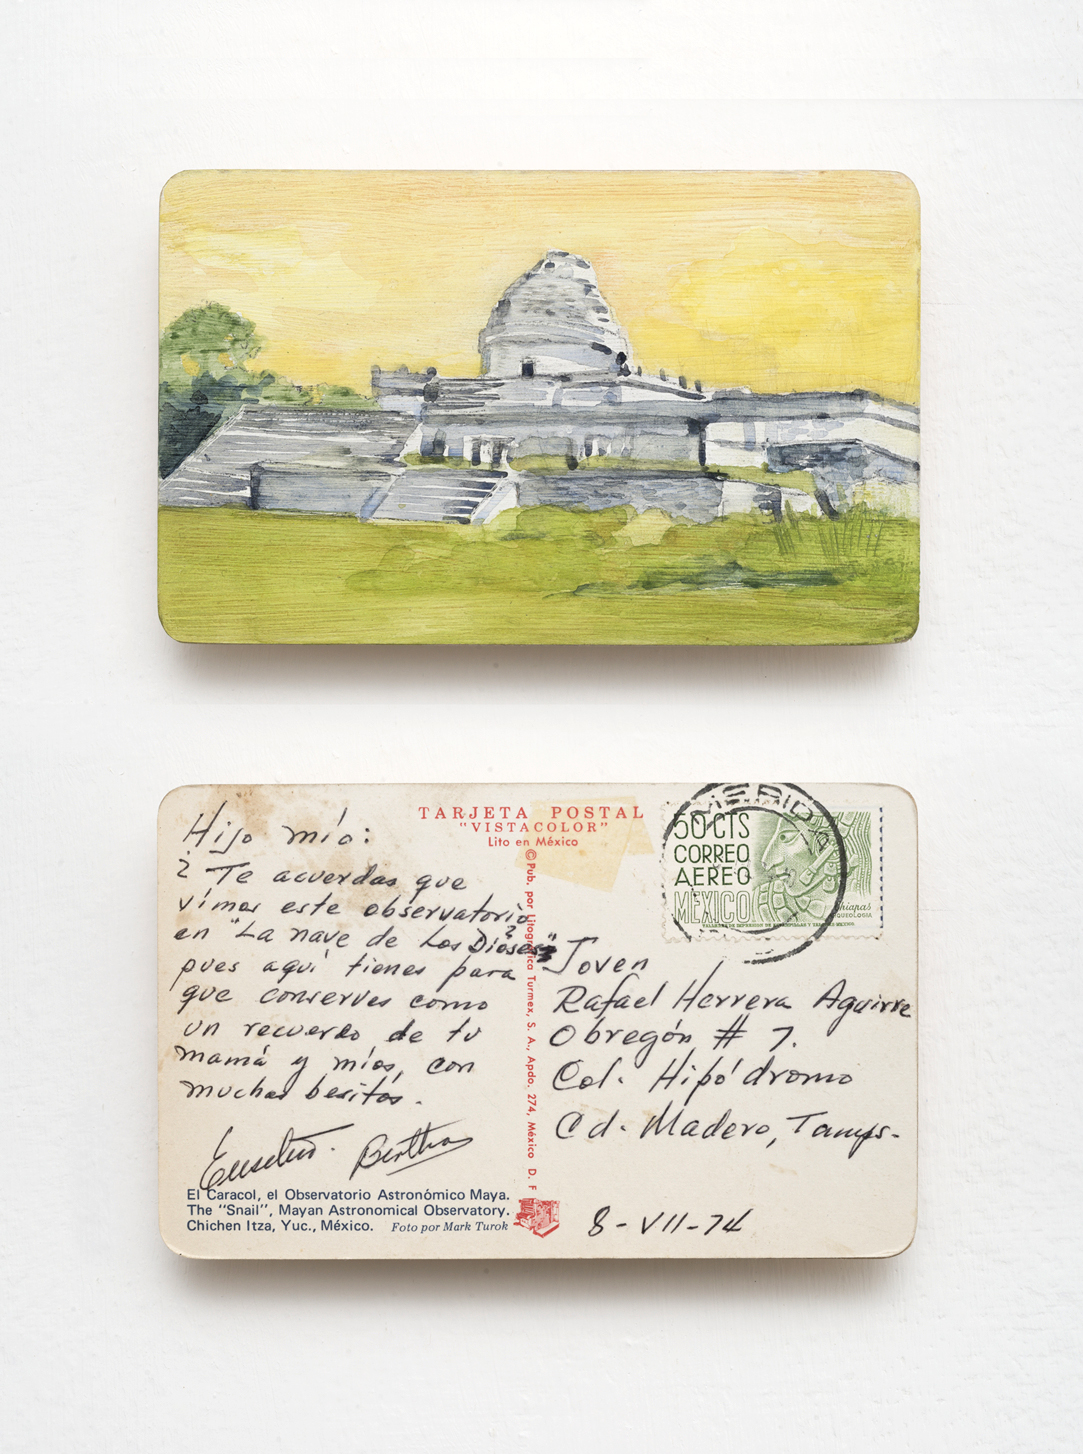 Hijo mío:
¿Te acuerdas que
vimos este observatorio
en "La nave de Los Dioses"?
pues aquí tienes para
que conserves como
un recuerdo de tu
mamá y míos, con
muchos besitos.
Bertha
El Caracol, el Observatorio Astronómico Maya.
The "Snail", Mayan Astronomical Observatory.
Chichen Itza, Yuc., México. Foto por Mark Turok
TARJETA POSTAL
"VISTACOLOR"
Lito en México
© Pub. por Litográfica Turmex, S. A., Apdo. 274, México D. F
MERIDA
50 CTS
CORREO
AEREO
MEXICO
Chiapas
ARQUEOLOGIA
Joven
Rafael Herrera Aguirre
Obregón # 7.
Col. Hipódromo
Cd. Madero, Tamps.
8-VII-74